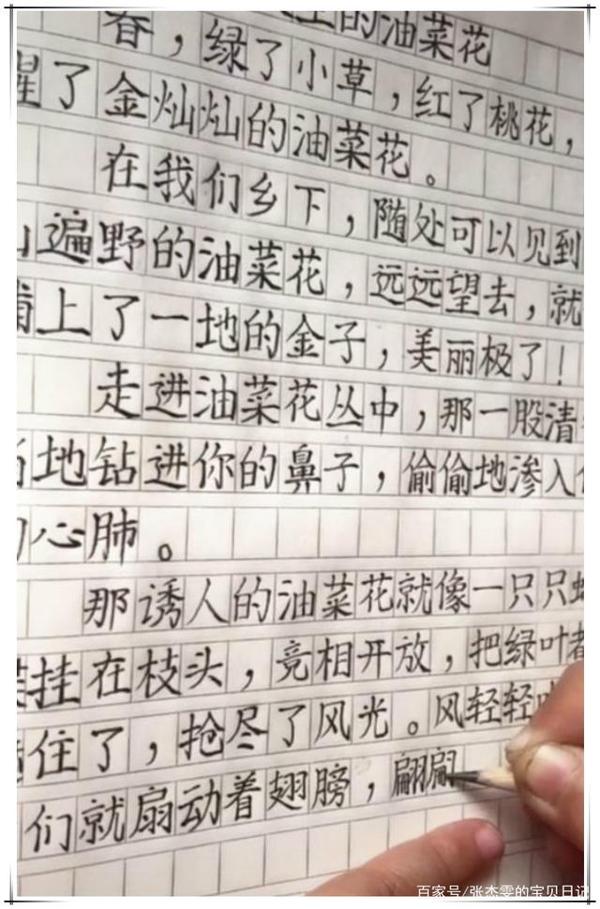 上的油菜花
春，绿了小草，红了桃花，
醒了金灿灿的油菜花。
在我们乡下，随处可以见到
山遍野的油菜花，远远望去，就
铺上了一地的金子，美丽极了！
走进油菜花丛中，那一股清
地钻进你的鼻子，偷偷地渗入
的心肺。
那诱人的油菜花就像一只只
挂在枝头，竞相开放，把绿叶都
住了，抢尽了风光。风轻轻
们就扇动着翅膀，翩
百家号/张杰雯的宝贝日记